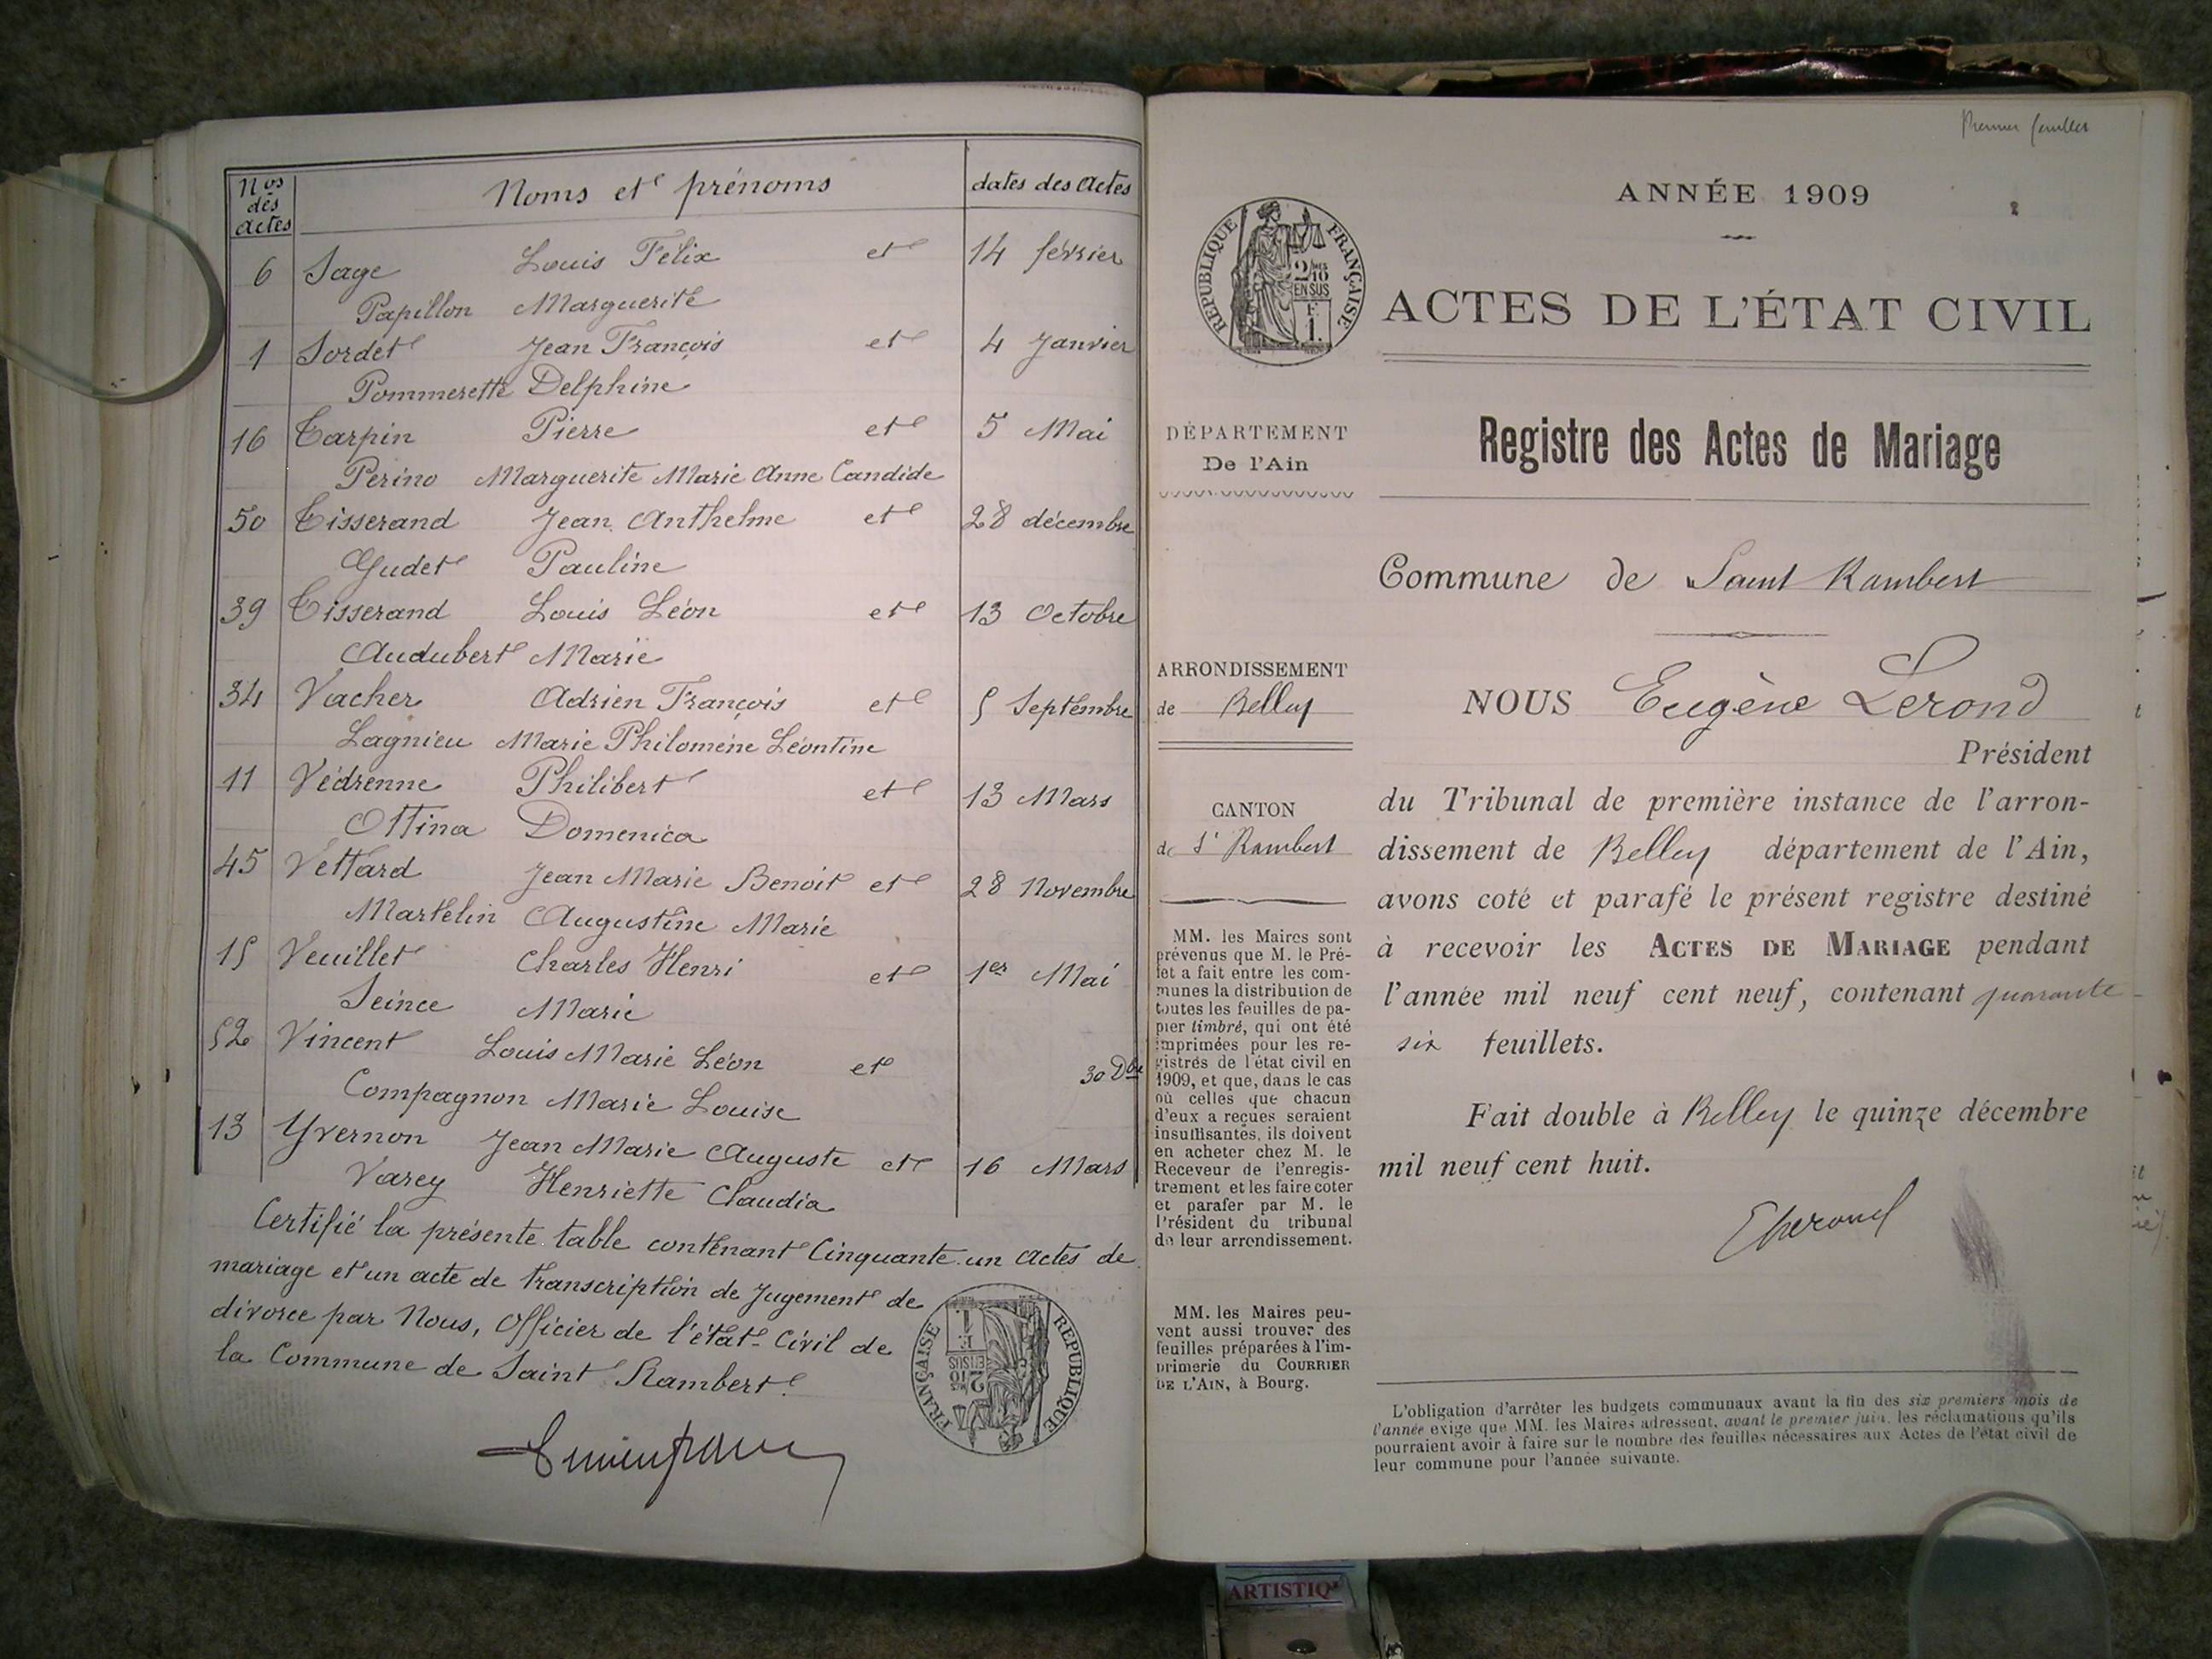 Nos des actes
Noms et prénoms
dates des Actes
6 Sage Louis Félix et 14 février
Papillon Marguerite
1 Sordet Jean François et 4 Janvier
Pommerette Delphine
16 Tarpin Pierre et 5 Mai
Perino Marguerite Marie Anne Candide
50 Tisserand Jean Anthelme et 28 décembre
Gudet Pauline
39 Tisserand Louis Léon et 13 Octobre
Audubert Marie
34 Vacher Adrien François et 5 Septembre
Lagnieu Marie Philomène Léontine
11 Védrenne Philibert et 13 Mars
Ottina Domenica
45 Vettard Jean Marie Benoit et 28 Novembre
Martelin Augustine Marie
15 Veuillet Charles Henri et 1er Mai
Seince Marie
52 Vincent Louis Marie Léon et 30 Dbre
Compagnon Marie Louise
13 Yvernon Jean Marie Auguste et 16 Mars
Varey Henriette Claudia
Certifié la présente table contenant Cinquante un actes de
mariage et un acte de transcription de Jugement de
divorce par Nous, Officier de l'état-Civil de
la Commune de Saint Rambert.
RÉPUBLIQUE FRANÇAISE
2/10 EN SUS
1 F.
Premier feuillet
ANNÉE 1909
RÉPUBLIQUE FRANÇAISE
2/10 EN SUS
F. 1.
ACTES DE L'ÉTAT CIVIL
DÉPARTEMENT
De l'Ain
Registre des Actes de Mariage
Commune de Saint Rambert
ARRONDISSEMENT
de Belley
NOUS Eugène Lerond
Président
CANTON
de St Rambert
du Tribunal de première instance de l'arron-
dissement de Belley département de l'Ain,
avons coté et parafé le présent registre destiné
à recevoir les ACTES DE MARIAGE pendant
l'année mil neuf cent neuf, contenant quarante
six feuillets.
Fait double à Belley le quinze décembre
mil neuf cent huit.
MM. les Maires sont
prévenus que M. le Pré-
fet a fait entre les com-
munes la distribution de
toutes les feuilles de pa-
pier timbré, qui ont été
imprimées pour les re-
gistres de l'état civil en
1909, et que, dans le cas
où celles que chacun
d'eux a reçues seraient
insuffisantes, ils doivent
en acheter chez M. le
Receveur de l'enregis-
trement et les faire coter
et parafer par M. le
Président du tribunal
de leur arrondissement.
MM. les Maires peu-
vent aussi trouver des
feuilles préparées à l'im-
primerie du COURRIER
DE L'AIN, à Bourg.
L'obligation d'arrêter les budgets communaux avant la fin des six premiers mois de
l'année exige que MM. les Maires adressent, avant le premier juin, les réclamations qu'ils
pourraient avoir à faire sur le nombre des feuilles nécessaires aux Actes de l'état civil de
leur commune pour l'année suivante.
ARTISTIQ